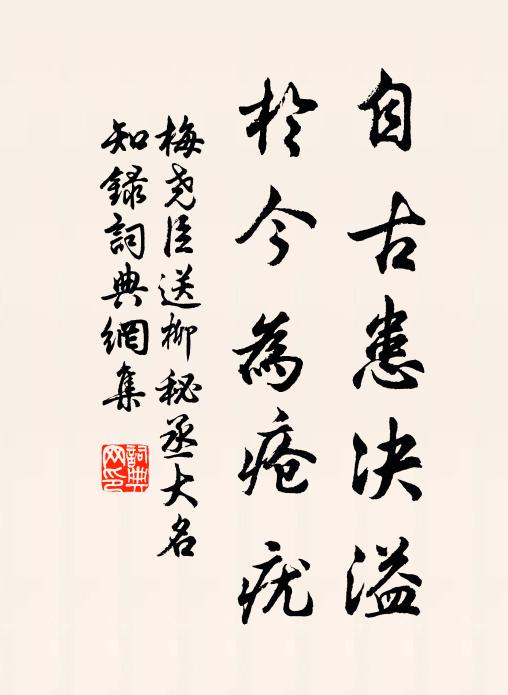 自古患决溢
於今為瘡疣
梅尧臣送柳秘丞大名
知録詞典網集
詞典网印